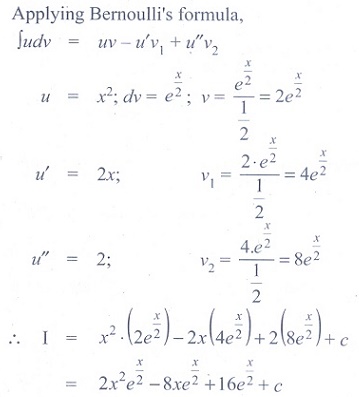 Applying Bernoulli's formula,
∫udv = uv – u′v₁ + u″v₂
u = x²; dv = e^(x/2); v = e^(x/2)/(1/2) = 2e^(x/2)
u′ = 2x; v₁ = 2·e^(x/2)/(1/2) = 4e^(x/2)
u″ = 2; v₂ = 4.e^(x/2)/(1/2) = 8e^(x/2)
∴ I = x²·(2e^(x/2)) – 2x(4e^(x/2)) + 2(8e^(x/2)) + c
= 2x²e^(x/2) – 8xe^(x/2) + 16e^(x/2) + c